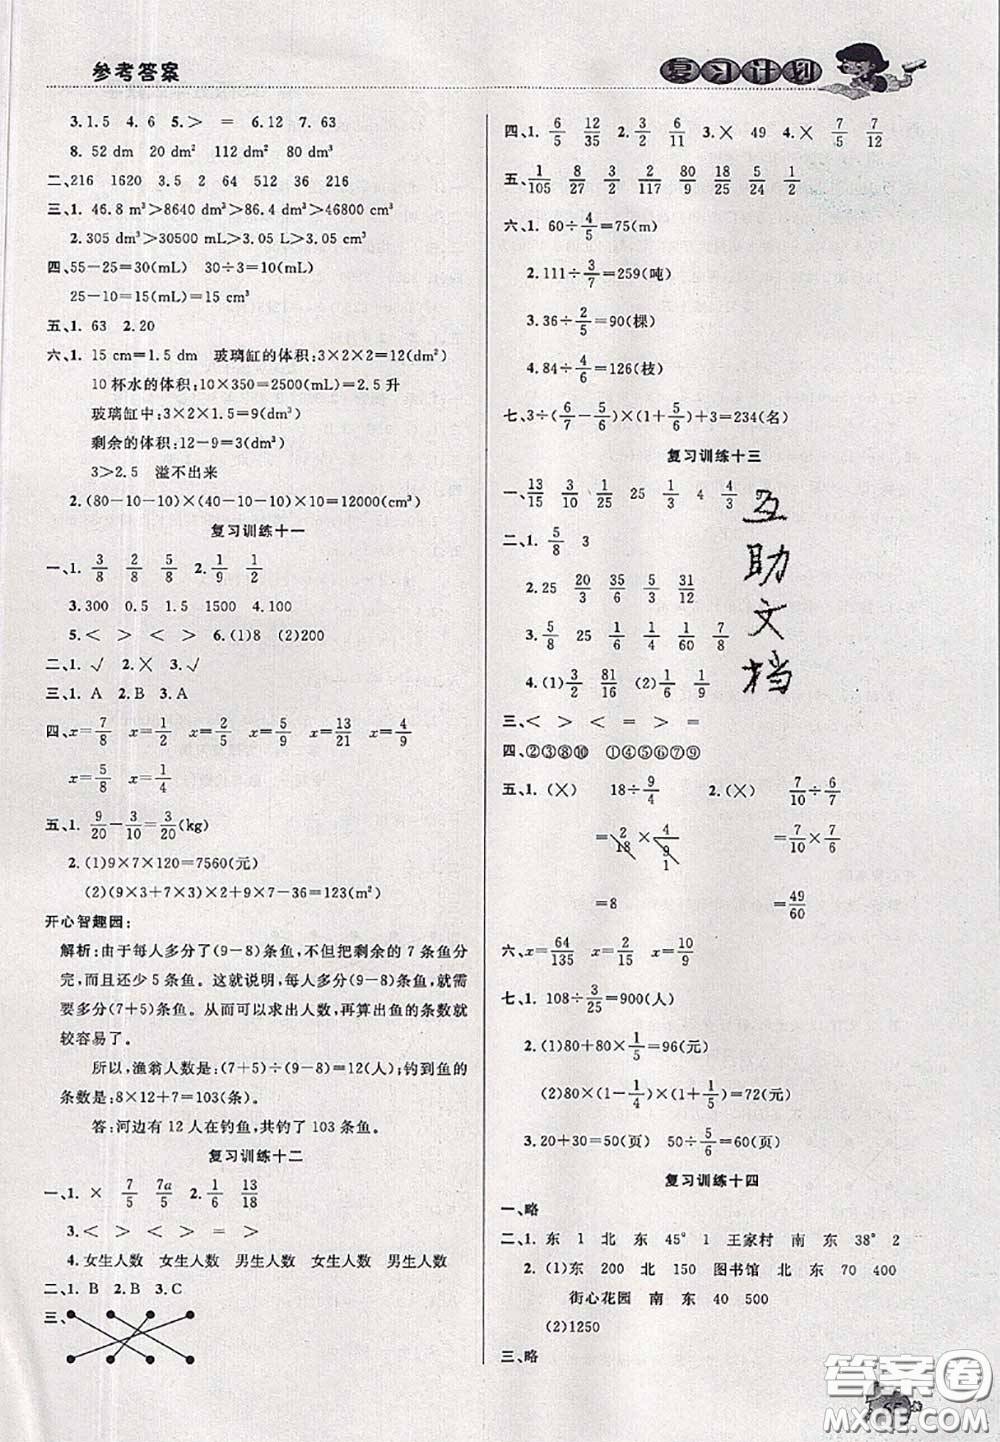 参考答案
复习计划
3.1.5 4.6 5.> = 6.12 7.63
8.52 dm 20 dm² 112 dm² 80 dm³
二、216 1620 3.5 2 64 512 36 216
三、1.46.8 m³>8640 dm³>86.4 dm³>46800 cm³
2.305 dm³>30500 mL>3.05 L>3.05 cm³
四、55-25=30(mL) 30÷3=10(mL)
25-10=15(mL)=15 cm³
五、1.63 2.20
六、1.15 cm=1.5 dm 玻璃缸的体积:3×2×2=12(dm³)
10杯水的体积:10×350=2500(mL)=2.5升
玻璃缸中:3×2×1.5=9(dm³)
剩余的体积:12-9=3(dm³)
3>2.5 溢不出来
2.(80-10-10)×(40-10-10)×10=12000(cm³)
复习训练十一
一、1. 3/8 2/8 5/8 2. 1/9 1/2
3.300 0.5 1.5 1500 4.100
5.< > < > 6.(1)8 (2)200
二、1.√ 2.× 3.√
三、1.A 2.B 3.A
四、x=7/8 x=1/2 x=2/5 x=5/9 x=13/21 x=4/9
x=5/8 x=1/4
五、1. 9/20-3/10=3/20(kg)
2.(1)9×7×120=7560(元)
(2)(9×3+7×3)×2+9×7-36=111(m²)
开心智趣园:
解析:由于每人多分了(9-8)条鱼,不但把剩余的7条鱼分
完,而且还少5条鱼。这就说明,每人多分(9-8)条鱼,需
要多分(7+5)条鱼。从而可以求出人数,再算出鱼的条数就
较容易了。
所以,渔翁人数是:(7+5)÷(9-8)=12(人);钓到鱼的
条数是:8×12+7=103(条)。
答:河边有12人在钓鱼,共钓了103条鱼。
复习训练十二
一、1.× 7/5 7a/5 2. 1/6 13/18
3.< > < > = >
4.女生人数 女生人数 男生人数 女生人数 男生人数
二、1.B 2.B 3.C
三、
四、1. 6/5 12/35 2. 3/2 6/11 3.× 49 4.× 7/5 7/12
五、1/105 8/27 3/2 2/117 80/9 18/25 5/24 1/2
六、1.60÷4/5=75(m)
2.111÷3/7=259(吨)
3.36÷2/5=90(棵)
4.84÷4/6=126(枝)
七、3÷(6/7-5/6)×(1+5/6)+3=234(名)
复习训练十三
一、13/15 3/10 1/25 25 1/3 4 4/3 9
二、1. 5/8 3
2.25 20/3 35/6 5/3 31/12
3. 5/8 25 1/6 1/4 1/10 7/8
4.(1)3/2 81/16 (2)1/6 1/9
三、< > < = > =
四、②③⑧⑩ ①④⑤⑥⑦⑨
五、1.(×) 18÷9/4 2.(×) 7/10÷6/7
=18×4/9 2 1 =7/10×7/6
=8 =49/60
六、x=64/135 x=2/15 x=10/9
七、1.108÷3/25=900(人)
2.(1)80+80×1/5=96(元)
(2)80×(1-1/4)×(1+1/5)=72(元)
3.20+30=50(页) 50÷5/6=60(页)
复习训练十四
一、略
二、1.东 1 北 东 45° 1 王家村 南 东 38° 2
2.(1)东 200 北 150 图书馆 北 东 70 400
街心花园 南 东 40 500
(2)1250
三、略
互助文档
答案圈
MXQE.COM